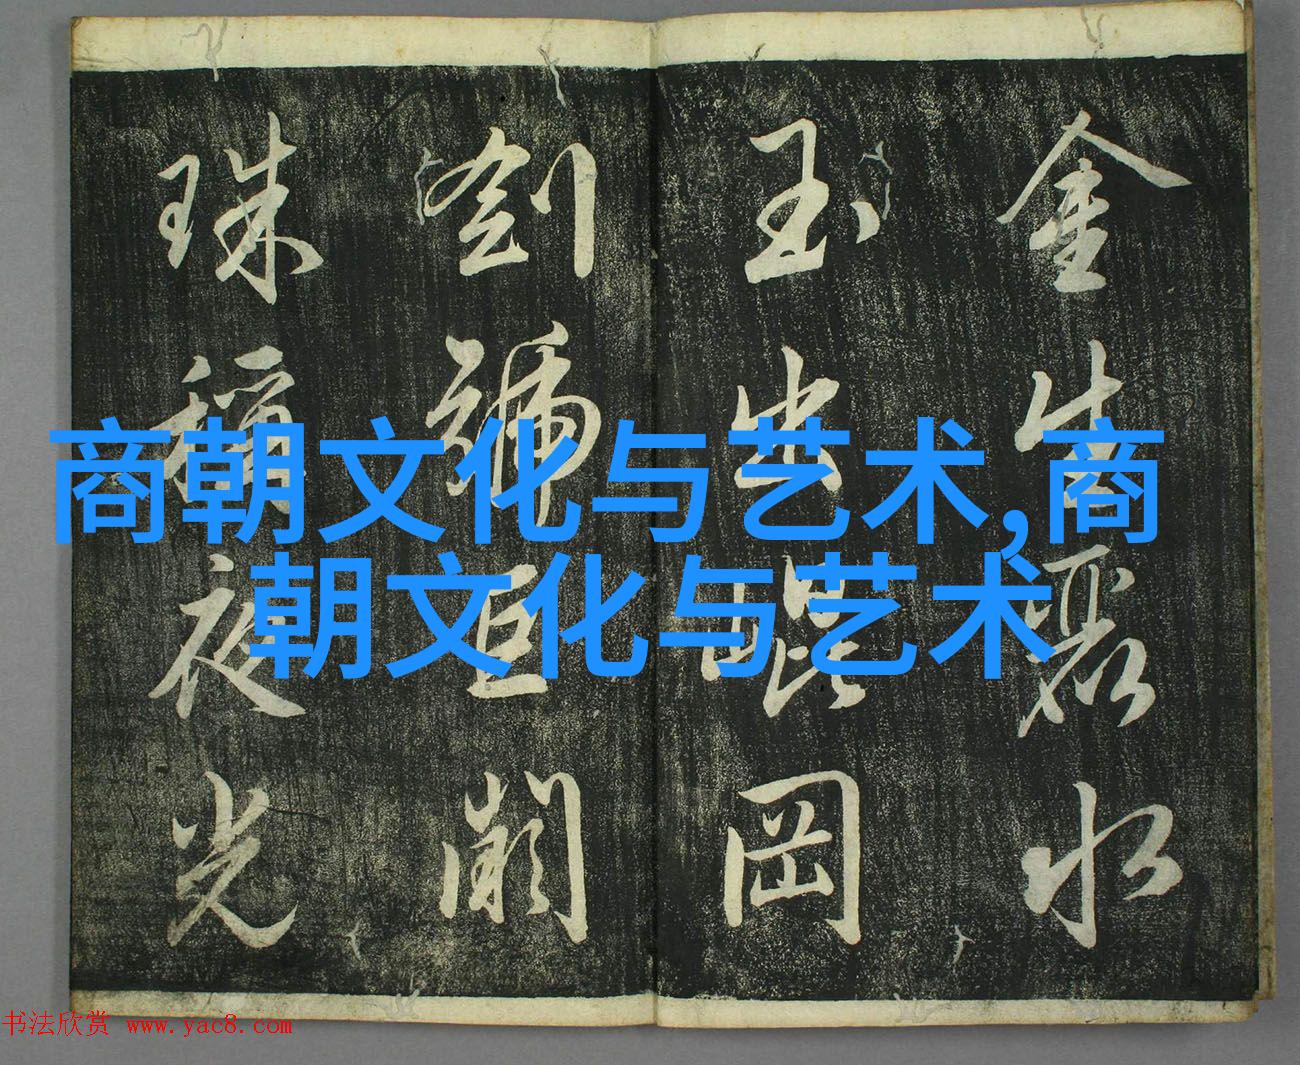 金生麗水
玉出崑岡
劍號巨闕
珠稱夜光
商朝文化与艺术,商
朝文化与艺术
书法欣赏 www.yac8.com